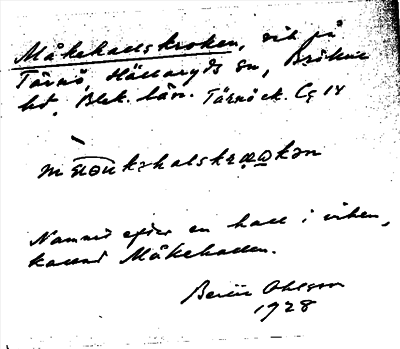 Måkehallskroken, vik på
Tärnö, Hällaryds sn, Bräkne
hd, Blek. län. Tärnö ek. Cg 14
Namnet efter en hall i viken,
kallad Måkehallen.
Ohlsson
1928